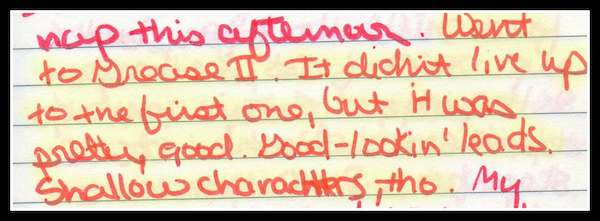 nap this afternoon. Went
to Grease II. It didn't live up
to the first one, but it was
pretty good. Good-lookin' leads.
Shallow characters, tho. My